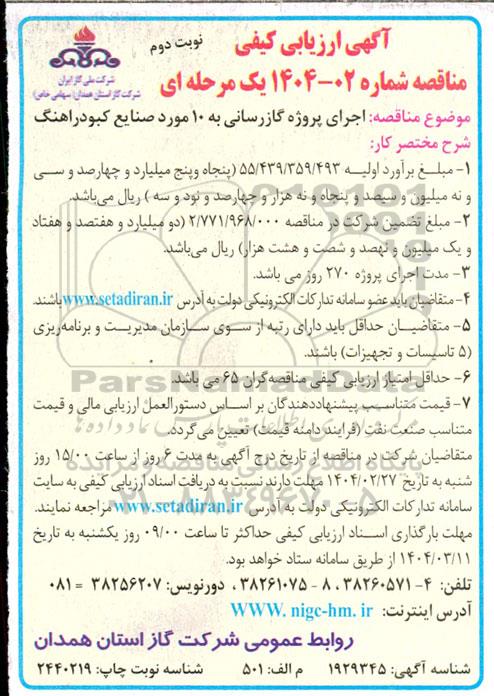 آگهی ارزیابی کیفی
نوبت دوم
مناقصه شماره ۰۲-۱۴۰۴ یک مرحله ای
شرکت ملی گاز ایران
شرکت گاز استان همدان (سهامی خاص)
موضوع مناقصه: اجرای پروژه گازرسانی به ۱۰ مورد صنایع کبودراهنگ
شرح مختصر کار:
۱- مبلغ برآورد اولیه ۵۵/۴۳۹/۳۵۹/۴۹۳ (پنجاه وپنج میلیارد و چهارصد و سی
و نه میلیون و سیصد و پنجاه و نه هزار و چهارصد و نود و سه ) ریال می‌باشد.
۲- مبلغ تضمین شرکت در مناقصه ۲/۷۷۱/۹۶۸/۰۰۰ (دو میلیارد و هفتصد و هفتاد
و یک میلیون و نهصد و شصت و هشت هزار) ریال می‌باشد.
۳- مدت اجرای پروژه ۲۷۰ روز می باشد.
۴- متقاضیان باید عضو سامانه تدارکات الکترونیکی دولت به آدرس www.setadiran.ir باشند.
۵- متقاضیان حداقل باید دارای رتبه از سوی سازمان مدیریت و برنامه‌ریزی
(۵ تاسیسات و تجهیزات) باشند.
۶- حداقل امتیاز ارزیابی کیفی مناقصه‌گران ۶۵ می باشد.
۷- قیمت متناسب پیشنهاددهندگان بر اساس دستورالعمل ارزیابی مالی و قیمت
متناسب صنعت نفت (فرایند دامنه قیمت) تعیین می گردد.
متقاضیان شرکت در مناقصه از تاریخ درج آگهی به مدت ۶ روز از ساعت ۱۵/۰۰ روز
شنبه به تاریخ ۱۴۰۴/۰۲/۲۷ مهلت دارند نسبت به دریافت اسناد ارزیابی کیفی به سایت
سامانه تدارکات الکترونیکی دولت به آدرس www.setadiran.ir مراجعه نمایند.
مهلت بارگذاری اسناد ارزیابی کیفی حداکثر تا ساعت ۰۹/۰۰ روز یکشنبه به تاریخ
۱۴۰۴/۰۳/۱۱ از طریق سامانه ستاد خواهد بود.
تلفن: ۴-۳۸۲۶۰۵۷۱، ۸-۳۸۲۶۱۰۷۵، دورنویس: ۳۸۲۵۶۲۰۷ = ۰۸۱
آدرس اینترنت: WWW. nigc-hm. ir
روابط عمومی شرکت گاز استان همدان
شناسه آگهی: ۱۹۲۹۳۴۵ م الف: ۵۰۱ شناسه نوبت چاپ: ۲۴۴۰۲۱۹
ParsNamadData
پایگاه اطلاع رسانی مناقصه و مزایده
۰۲۱-۸۸۳۴۹۶۷۰-۵